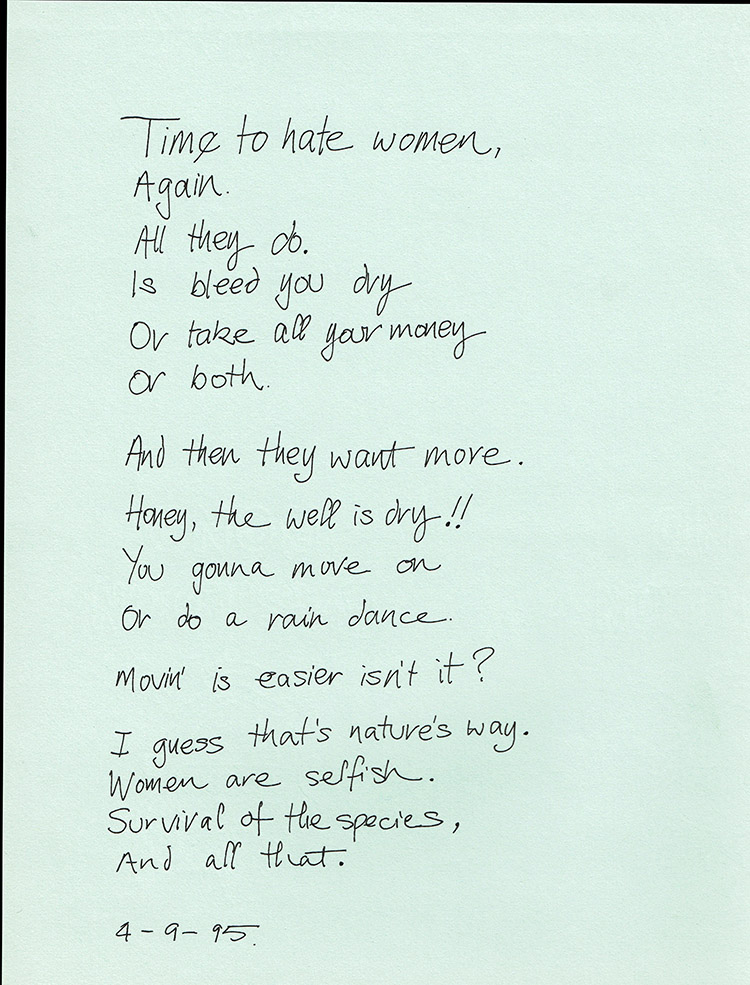 Time to hate women,
Again.
All they do.
Is bleed you dry
Or take all your money
Or both.
And then they want more.
Honey, the well is dry!!
You gonna move on
Or do a rain dance.
Movin' is easier isn't it?
I guess that's nature's way.
Women are selfish.
Survival of the species,
And all that.
4-9-95.